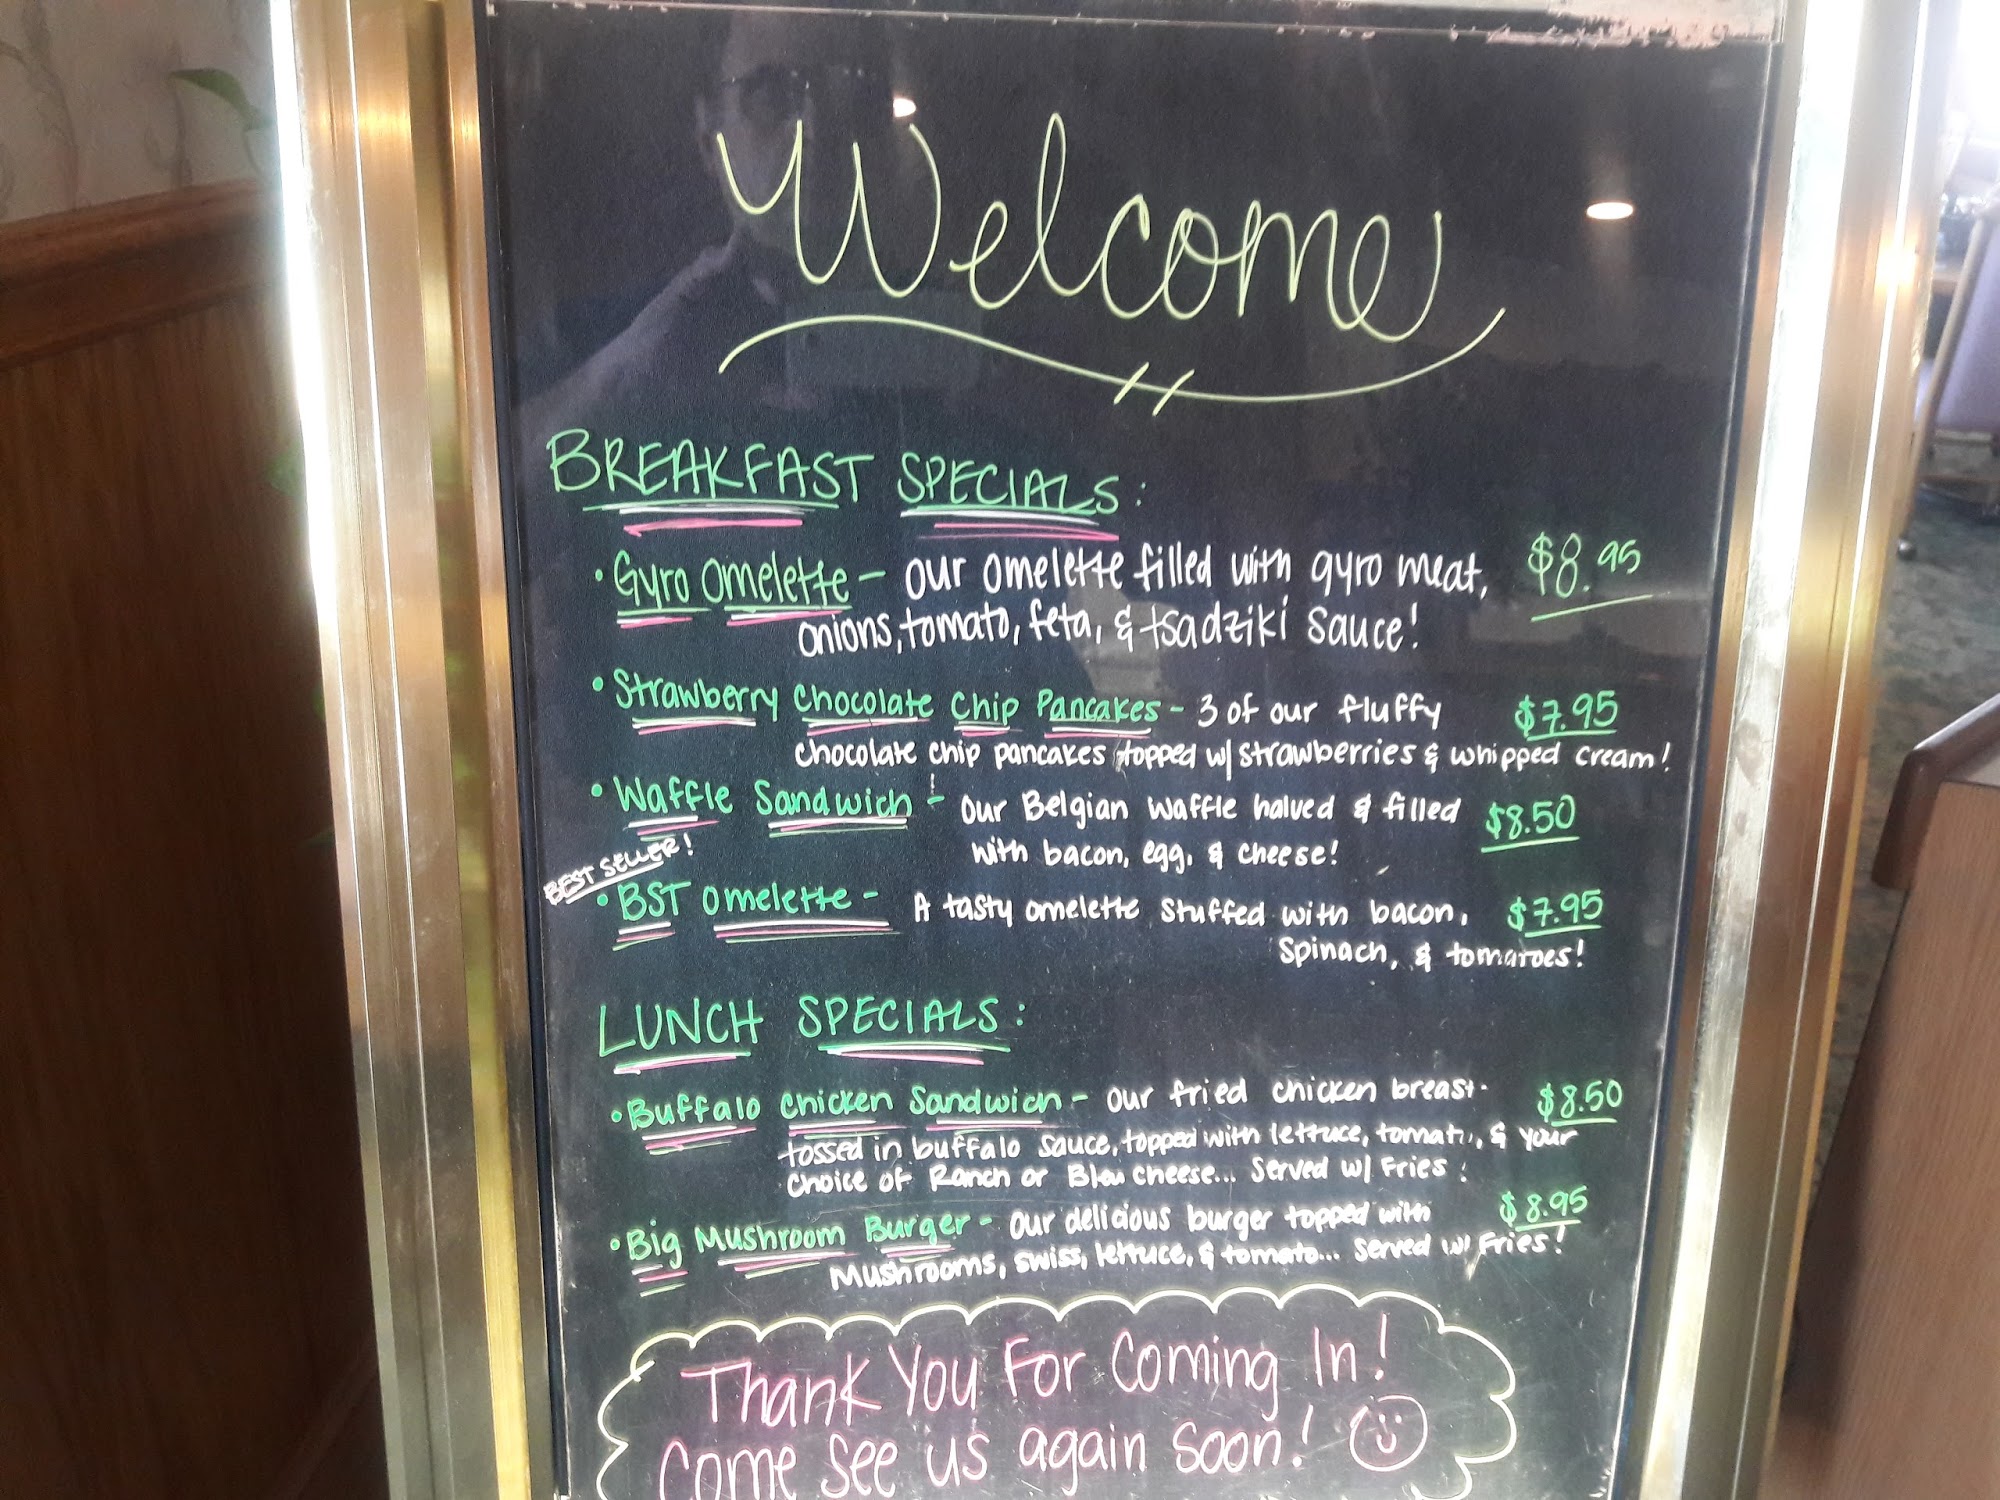 Welcome
BREAKFAST SPECIALS:
• Gyro Omelette - our omelette filled with gyro meat, $8.95
onions, tomato, feta, & tsadziki sauce!
• Strawberry Chocolate Chip Pancakes - 3 of our fluffy $7.95
chocolate chip pancakes topped w/ strawberries & whipped cream!
• Waffle Sandwich - our Belgian waffle halved & filled $8.50
with bacon, egg, & cheese!
BEST SELLER!
• BST Omelette - A tasty omelette stuffed with bacon, $7.95
spinach, & tomatoes!
LUNCH SPECIALS:
• Buffalo Chicken Sandwich - our fried chicken breast $8.50
tossed in buffalo sauce, topped with lettuce, & your
choice of Ranch or Bleu cheese... Served w/ Fries!
• Big Mushroom Burger - our delicious burger topped with $8.95
Mushrooms, swiss, lettuce, & tomato... Served w/ Fries!
Thank You For Coming In!
Come see us again soon!